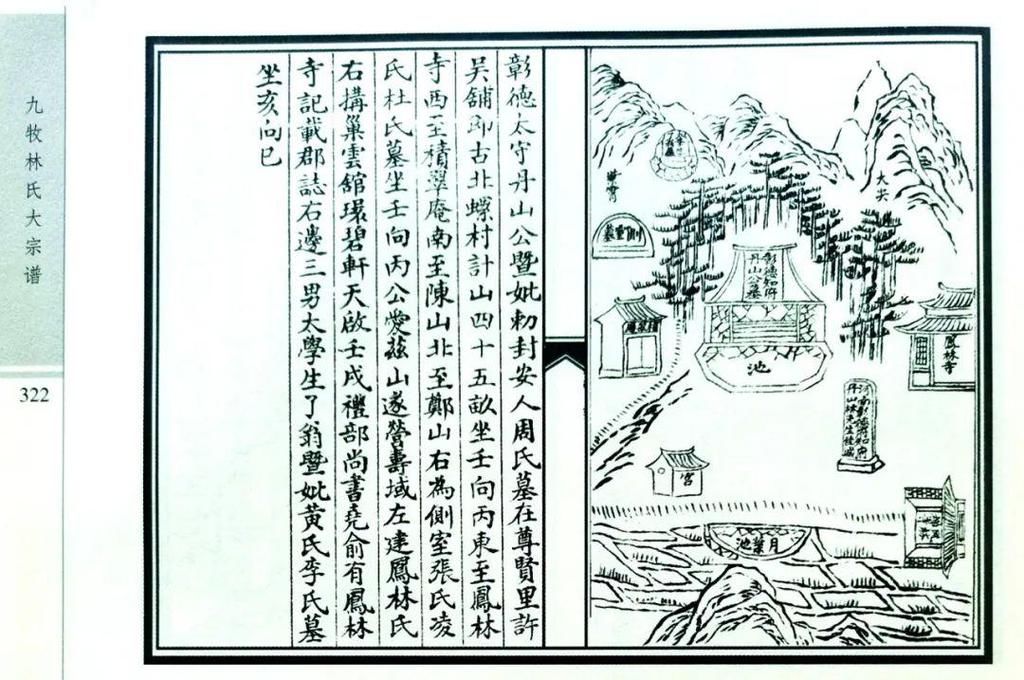 九牧林氏大宗谱
322
彰德太守丹山公暨妣勅封安人周氏墓在尊賢里許
吴舖即古北螺村計山四十五畝坐壬向丙東至鳳林
寺西至積翠庵南至陳山北至鄭山右為側室張氏凌
氏杜氏墓坐壬向丙公愛茲山遂營壽域左建鳳林氏
右搆巢雲舘環碧軒天啟壬戌禮部尚書堯俞有鳳林
寺記載郡誌右邊三男太學生了翁暨妣黄氏李氏墓
坐亥向巳
大尖
側室墓
彰德知府
丹山公墓
池
鳳林寺
宮
月葉池